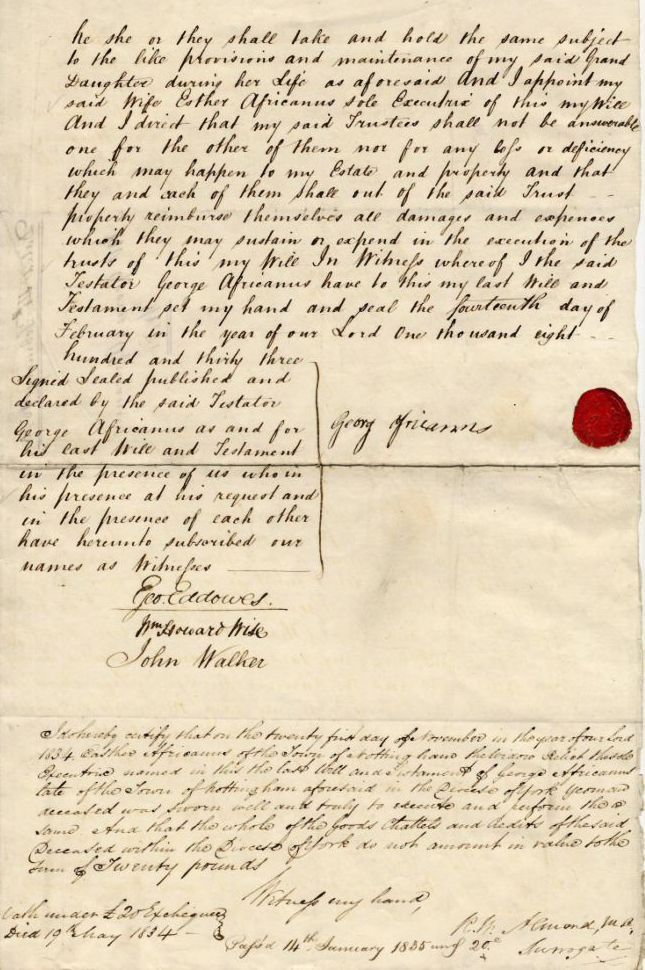 he she or they shall take and hold the same subject
to the like provisions and maintenance of my said Grand
Daughter during her Life as aforesaid And I appoint my
said Wife Esther Africanus sole Executrix of this my Will
And I direct that my said Trustees shall not be answerable
one for the other of them nor for any loss or deficiency
which may happen to my Estate and property and that
they and each of them shall out of the said Trust
property reimburse themselves all damages and expences
which they may sustain or expend in the execution of the
trusts of this my Will In Witness whereof I the said
Testator George Africanus have to this my last Will and
Testament set my hand and seal the fourteenth day of
February in the year of our Lord One thousand eight
hundred and thirty three
Signed Sealed published and
declared by the said Testator
George Africanus as and for
his last Will and Testament
in the presence of us who in
his presence at his request and
in the presence of each other
have hereunto subscribed our
names as Witnesses
Georg Africanus
Geo. Eddowes.
Wm Howard Wise
John Walker
I do hereby certify that on the twenty first day of November in the year of our Lord
1834. Easther Africanus of the Town of Nottingham the Widow Relict the sole
Executrix named in this the last Will and Testament of George Africanus
late of the Town of Nottingham aforesaid in the Diocese of York Yeoman
deceased was Sworn well and truly to execute and perform the
same And that the whole of the Goods Chattels and Credits of the said
Deceased within the Diocese of York do not amount in value to the
Sum of Twenty pounds
Witness my hand,
R. W. Almond, M.A.
Surrogate
Oath under £20 Exchequer
Died 19th May 1834
Pass'd 14th January 1835